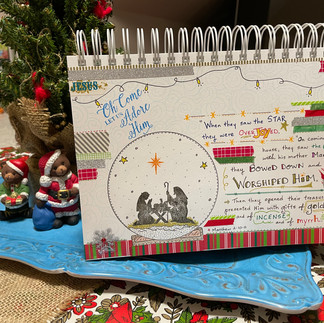 JESUS
Oh Come
LET US
Adore
Him
When they saw the STAR
they were OVERJOYED.
coming
house, they saw the
with his mother
they BOWED DOWN and
WORSHIPED HIM.
Then they opened their
presented Him with gifts of gold
and of INCENSE
and of myrrh